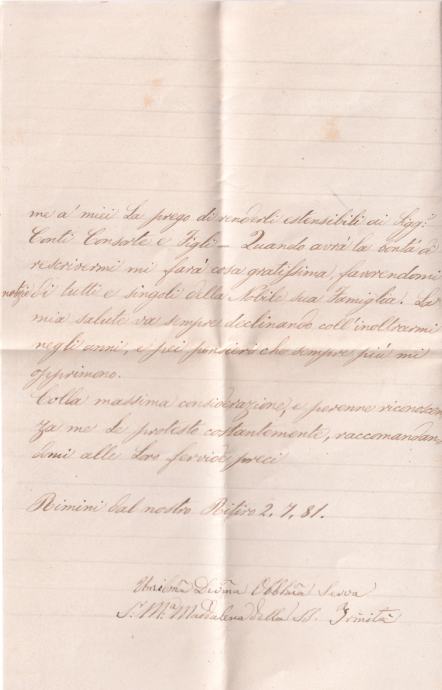 me a' miei La prego di renderli estensibili ai Sigg.i
Conti Consorte e Figli – Quando avrà la bontà di
rescrivermi mi farà cosa gratissima, favorendomi
notizie di tutti e singoli della Nobile sua Famiglia. La
mia salute va sempre declinando coll'inoltrarmi
negli anni, e pei pensieri che sempre più mi
opprimono.
Colla massima considerazione, e perenne riconoscen
za me Le protesto costantemente, raccomandan
domi alle Loro fervide preci
Rimini dal nostro Ritiro 2. 7. 81.
Umilma Devma Obblma Serva
Sr. Ma. Maddalena della SS. Trinità